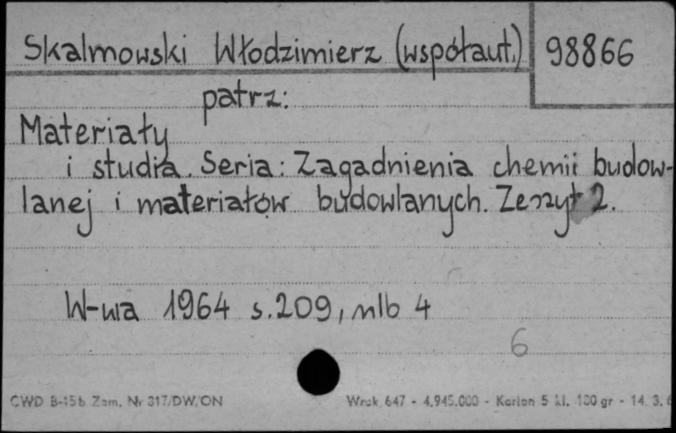 Skalmowski Włodzimierz (współaut.) 98866
patrz:
Materiały
i studia. Seria: Zagadnienia chemii budow-
lanej i materiałów budowlanych. Zeszyt 2.
W-wa 1964 s. 209, nlb 4
6
CWD B-15b Zam. Nr 317/DW/ON Wrak 647 - 4.945.000 - Karton 5 kl. 180 gr - 14. 3.